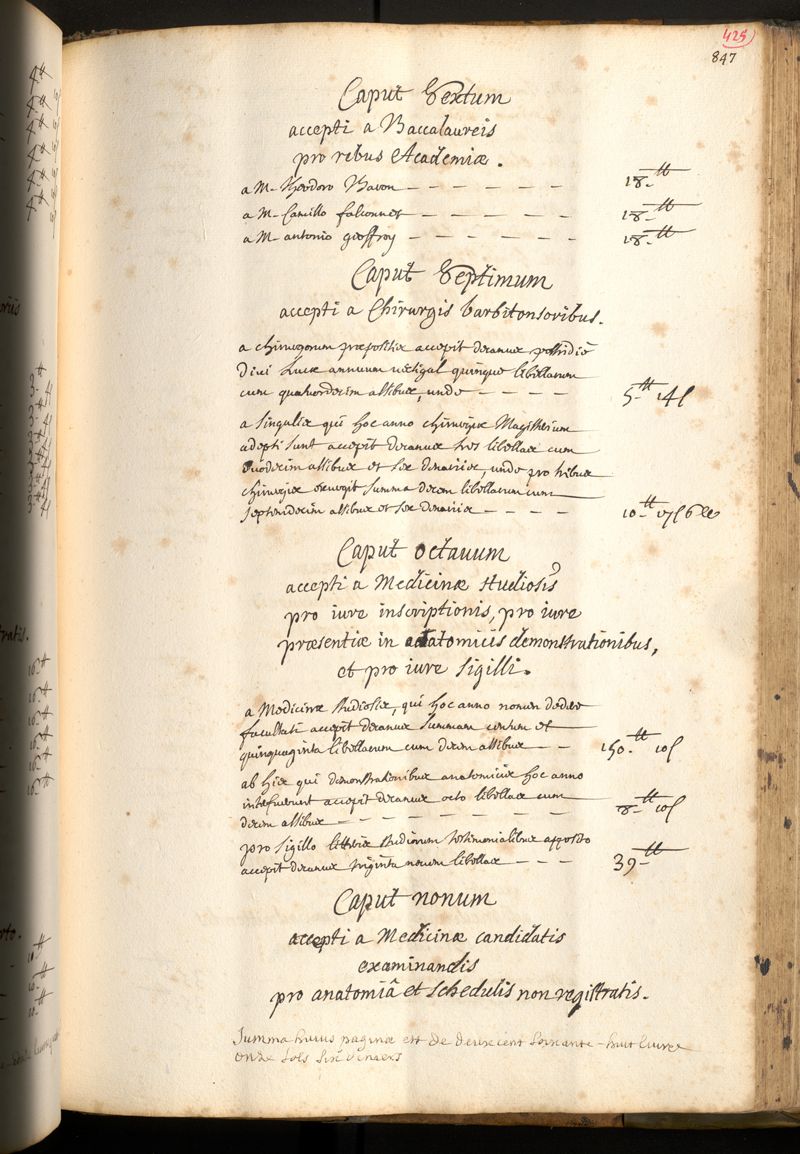 425
847
Caput Sextum
accepti a Baccalaureis
pro rebus Academiæ.
a M. Theodoro Baron — — — — — — 18.tt
a M. Camillo falconnet — — — — — 18.tt
a M. antonio geoffroy — — — — — — 18.tt
Caput Septimum
accepti a Chirurgis barbitonsoribus.
a chirurgorum præpositis accepit decanus postridiè
divi Lucæ annuum vectigal quinque libellarum
cum quatuordecim assibus, unde — — — — 5.tt 14ſ
a singulis qui hoc anno chirurgiæ Magisterium
adepti sunt accepit decanus tres libellas cum
duodecim assibus et sex denariis, unde pro tribus
chirurgis exurgit summa decem libellarum cum
septemdecim assibus et sex denariis — — — — 10.tt 17ſ 6
Caput octauum
accepti a Medicinæ studiosis
pro iure inscriptionis, pro iure
præsentiæ in anatomicis demonstrationibus,
et pro iure sigilli.
a Medicinæ studiosis, qui hoc anno nomen dedere
facultati accepit decanus summam centum et
quinquaginta libellarum cum decem assibus — — 150.tt 10ſ
ab his qui demonstrationibus anatomicis hoc anno
interfuerunt accepit decanus octo libellas cum
decem assibus — — — — — — — — 8.tt 10ſ
pro sigillo litteris studiorum testimonialibus apposito
accepit decanus triginta novem libellas — — — 39.tt
Caput nonum
accepti a Medicinæ candidatis
examinandis
pro anatomiâ et schedulis non registratis.
Summa huius paginæ est de deux cent soixante-huit livres
onze sols six deniers